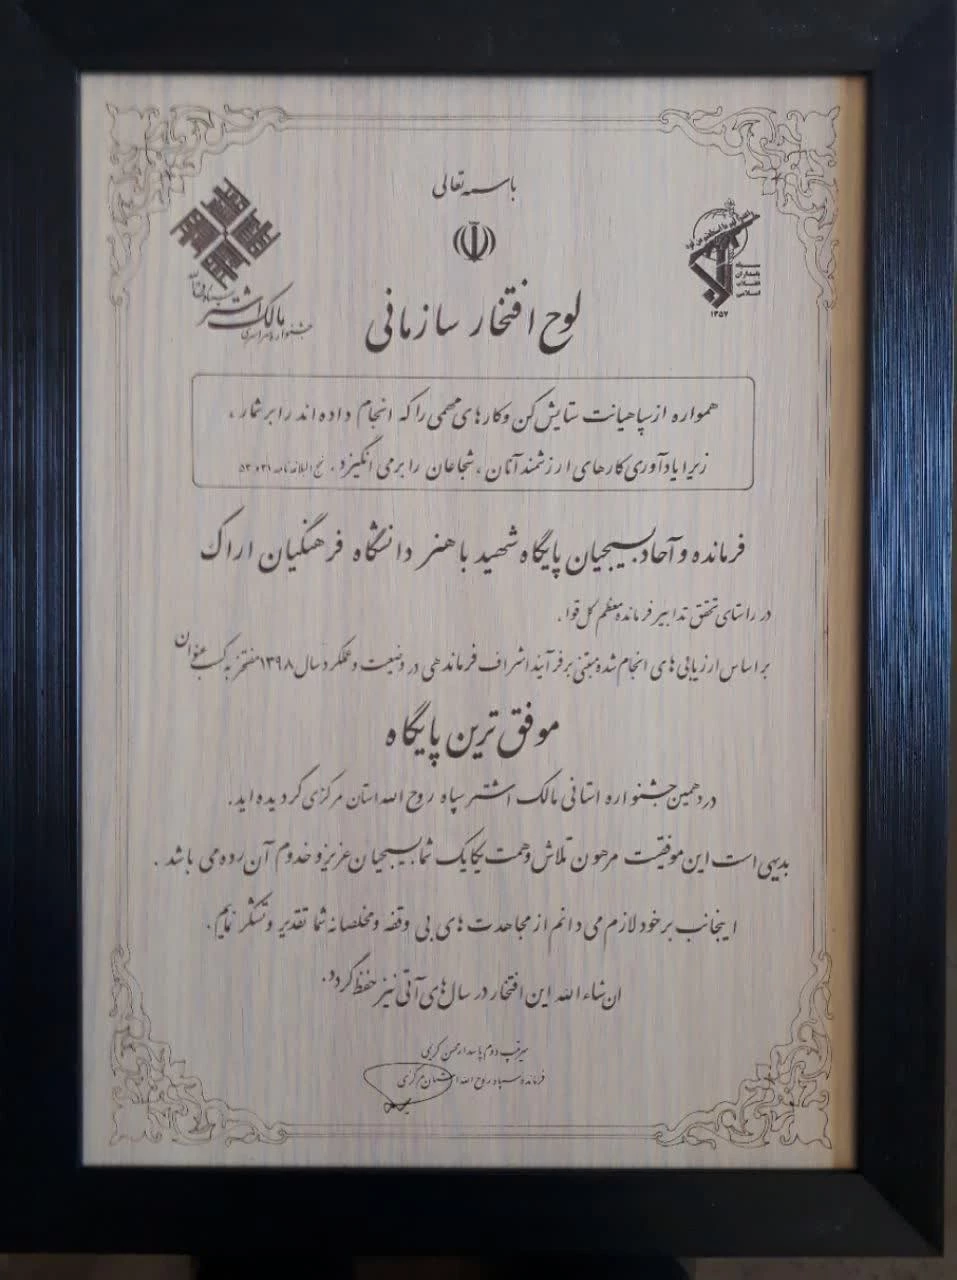 باسمه تعالی
سپاه
پاسداران
انقلاب
اسلامی
۱۳۵۷
جشنواره سراسری
مالک اشتر
لوح افتخار سازمانی
همواره از سپاهیانت ستایش کن و کارهای مهمی را که انجام داده اند را برشمار ،
زیرا یادآوری کارهای ارزشمند آنان ، شجاعان را بر می انگیزد . نهج البلاغه نامه ۵۳
فرمانده و آحاد بسیجیان پایگاه شهید باهنر دانشگاه فرهنگیان اراک
در راستای تحقق تدابیر فرمانده معظم کل قوا ،
بر اساس ارزیابی های انجام شده مبتنی بر فرآیند اشراف فرماندهی در وضعیت و عملکرد سال ۱۳۹۸ مفتخر به کسب عنوان
موفق ترین پایگاه
در دهمین جشنواره استانی مالک اشتر سپاه روح الله استان مرکزی گردیده اید .
بدیهی است این موفقیت مرهون تلاش و همت یکایک شما بسیجیان عزیز و خدوم آن رده می باشد .
اینجانب بر خود لازم می دانم از مجاهدت های بی وقفه و مخلصانه شما تقدیر و تشکر نمایم .
ان شاء الله این افتخار در سال های آتی نیز حفظ گردد .
سرتیپ دوم پاسدار محسن کریمی
فرمانده سپاه روح الله استان مرکزی